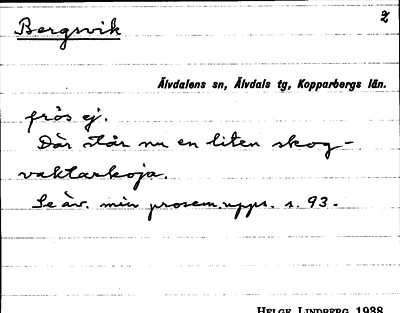 Bergsvik
2
Älvdalens sn, Älvdals tg, Kopparbergs län.
frös ej.
Där står nu en liten skog-
vaktarkoja.
Se äv. min prosem.upps. s. 93.
HELGE LINDBERG 1938